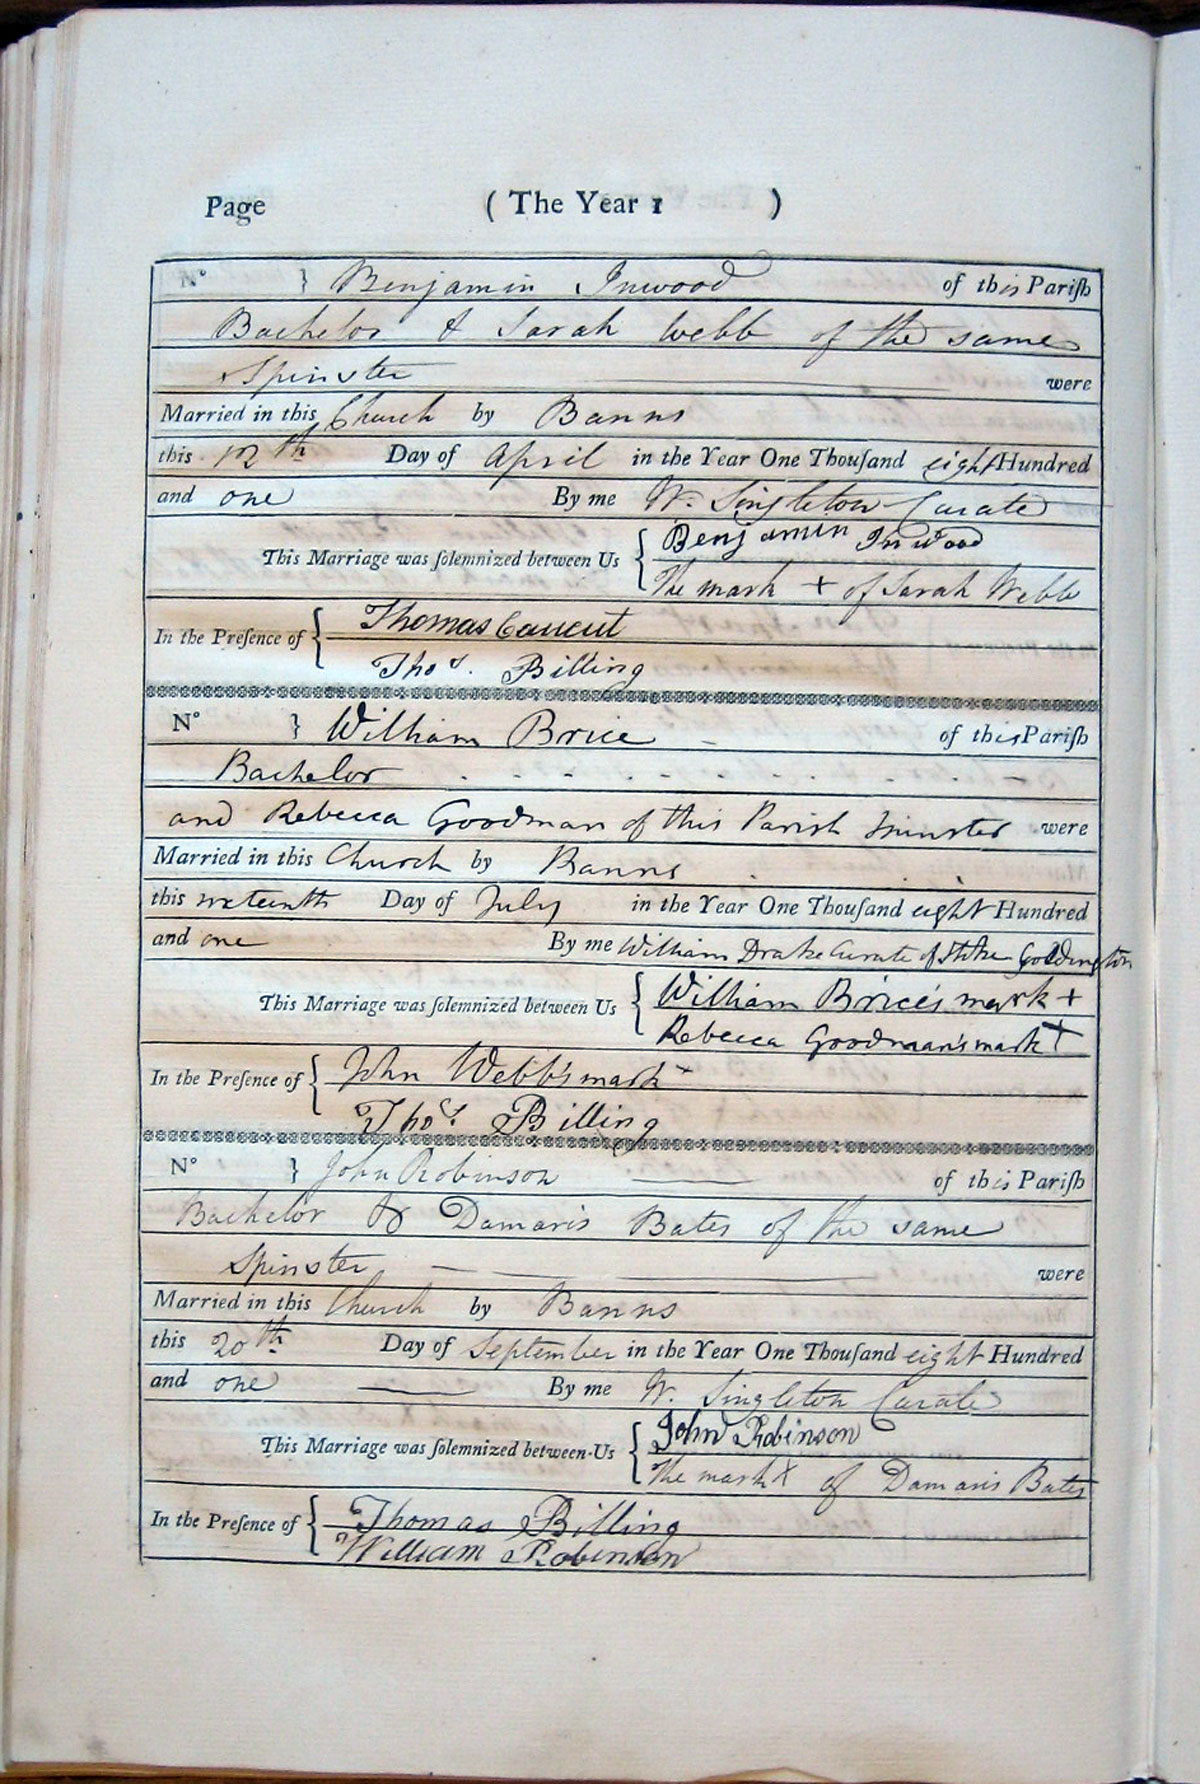 Page ( The Year 1 )
N° } Benjamin Inwood of this Pariſh
Bachelor & Sarah Webb of the same
Spinster were
Married in this Church by Banns
this 12th Day of April in the Year One Thouſand eight Hundred
and one By me W. Singleton Curate
This Marriage was ſolemnized between Us { Benjamin Inwood
The mark + of Sarah Webb
In the Preſence of { Thomas
Thos. Billing
N° } William Brice of this Pariſh
Bachelor
and Rebecca Goodman of this Parish were
Married in this Church by Banns
this sixteenth Day of July in the Year One Thouſand eight Hundred
and one By me William Drake Curate of Stoke Goldington
This Marriage was ſolemnized between Us { William Brice's mark +
Rebecca Goodman's mark +
In the Preſence of { John Webb's mark +
Thos. Billing
N° } John Robinson of this Pariſh
Bachelor & Damaris Bates of the same
Spinster were
Married in this Church by Banns
this 20th Day of September in the Year One Thouſand eight Hundred
and one By me W. Singleton Curate
This Marriage was ſolemnized between Us { John Robinson
The mark X of Damaris Bates
In the Preſence of { Thomas Billing
William Robinson